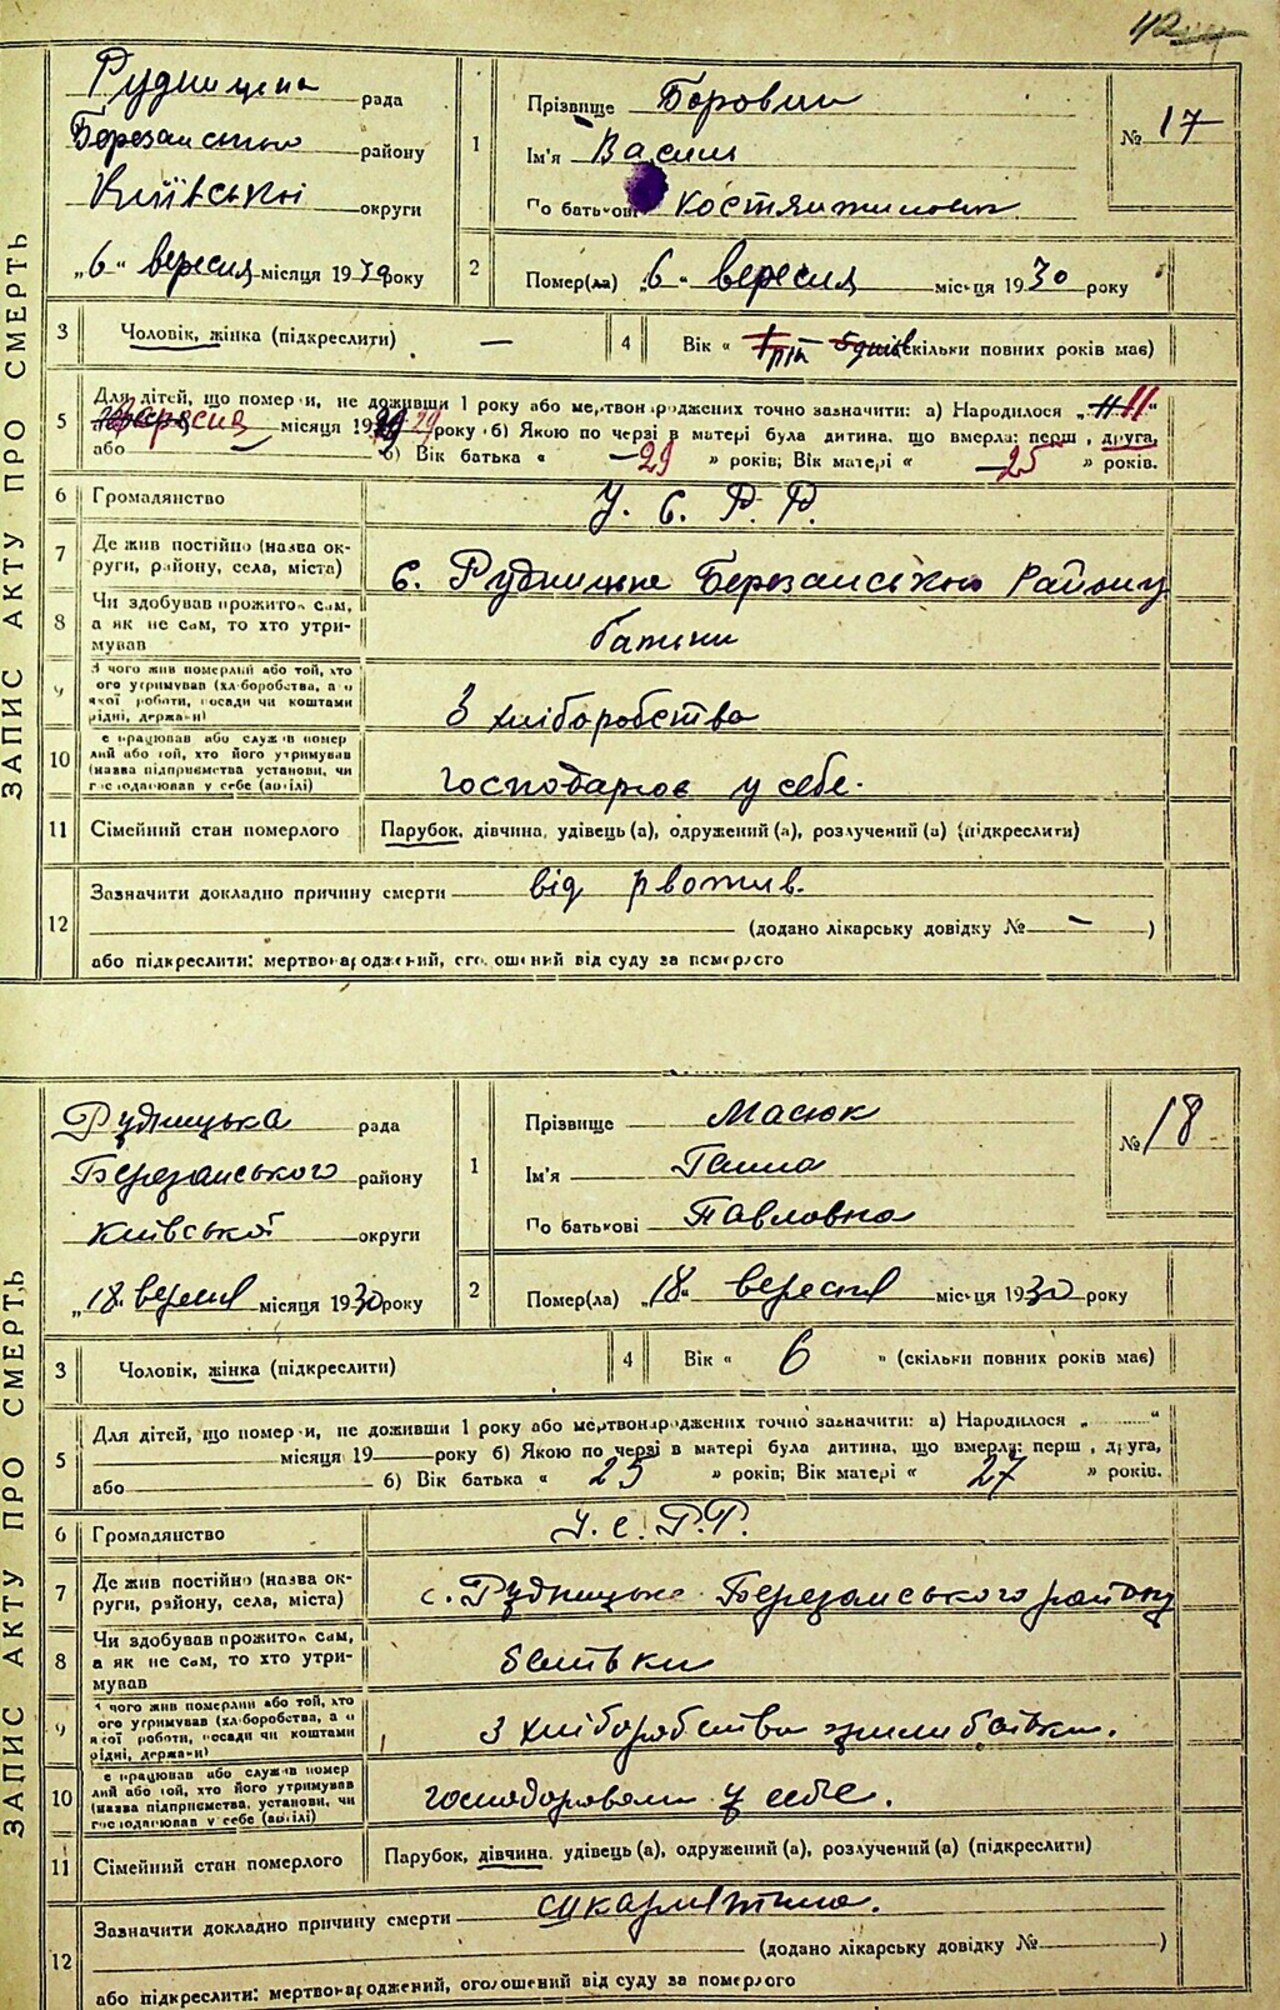 42
ЗАПИС АКТУ ПРО СМЕРТЬ
рада
Березанського району
Київської округи
„6“ вересня місяця 1930 року
1
Прізвище Боровик
Ім'я Василь
По батькові Костянтинович
№ 17
2
Помер(ла) „6“ вересня місяця 1930 року
3
Чоловік, жінка (підкреслити) —
4
Вік « 1 рік 5 днів скільки повних років має)
5
Для дітей, що померли, не доживши 1 року або мертвонароджених точно зазначити: а) Народилося „11“
вересня місяця 1929 року б) Якою по черзі в матері була дитина, що вмерла: перша, друга,
або б) Вік батька « —29 » років; Вік матері « —25 » років.
6
Громадянство
У. С. Р. Р.
7
Де жив постійно (назва округи, району, села, міста)
с. Березанського району
8
Чи здобував прожиток сам, а як не сам, то хто утримував
батьки
9
З чого жив померлий або той, хто його утримував (хліборобства, а о якої роботи, посади чи коштами рідні, держави)
З хліборобства
10
Де працював або служив померлий або той, хто його утримував (назва підприємства установи, чи господарював у себе (вдома))
господарює у себе.
11
Сімейний стан померлого
Парубок, дівчина, удівець (а), одружений (а), розлучений (а) (підкреслити)
12
Зазначити докладно причину смерти від рвотив.
(додано лікарську довідку № — )
або підкреслити: мертвонароджений, оголошений від суду за померлого
ЗАПИС АКТУ ПРО СМЕРТЬ
Рудницька рада
Березанського району
Київської округи
„18“ вересня місяця 1930 року
1
Прізвище Масюк
Ім'я Ганна
По батькові Павловна
№ 18
2
Помер(ла) „18“ вересня місяця 1930 року
3
Чоловік, жінка (підкреслити)
4
Вік « 6 » (скільки повних років має)
5
Для дітей, що померли, не доживши 1 року або мертвонароджених точно зазначити: а) Народилося „ “
місяця 19 року б) Якою по черзі в матері була дитина, що вмерла: перша, друга,
або б) Вік батька « 25 » років; Вік матері « 27 » років.
6
Громадянство
У. С. Р. Р.
7
Де жив постійно (назва округи, району, села, міста)
с. Рудницьке Березанського району
8
Чи здобував прожиток сам, а як не сам, то хто утримував
батьки
9
З чого жив померлий або той, хто його утримував (хліборобства, а о якої роботи, посади чи коштами рідні, держави)
З хліборобства жили батьки.
10
Де працював або служив померлий або той, хто його утримував (назва підприємства, установи, чи господарював у себе (вдома))
господарювали у себе.
11
Сімейний стан померлого
Парубок, дівчина, удівець (а), одружений (а), розлучений (а) (підкреслити)
12
Зазначити докладно причину смерти шкарлятина.
(додано лікарську довідку № )
або підкреслити: мертвонароджений, оголошений від суду за померлого